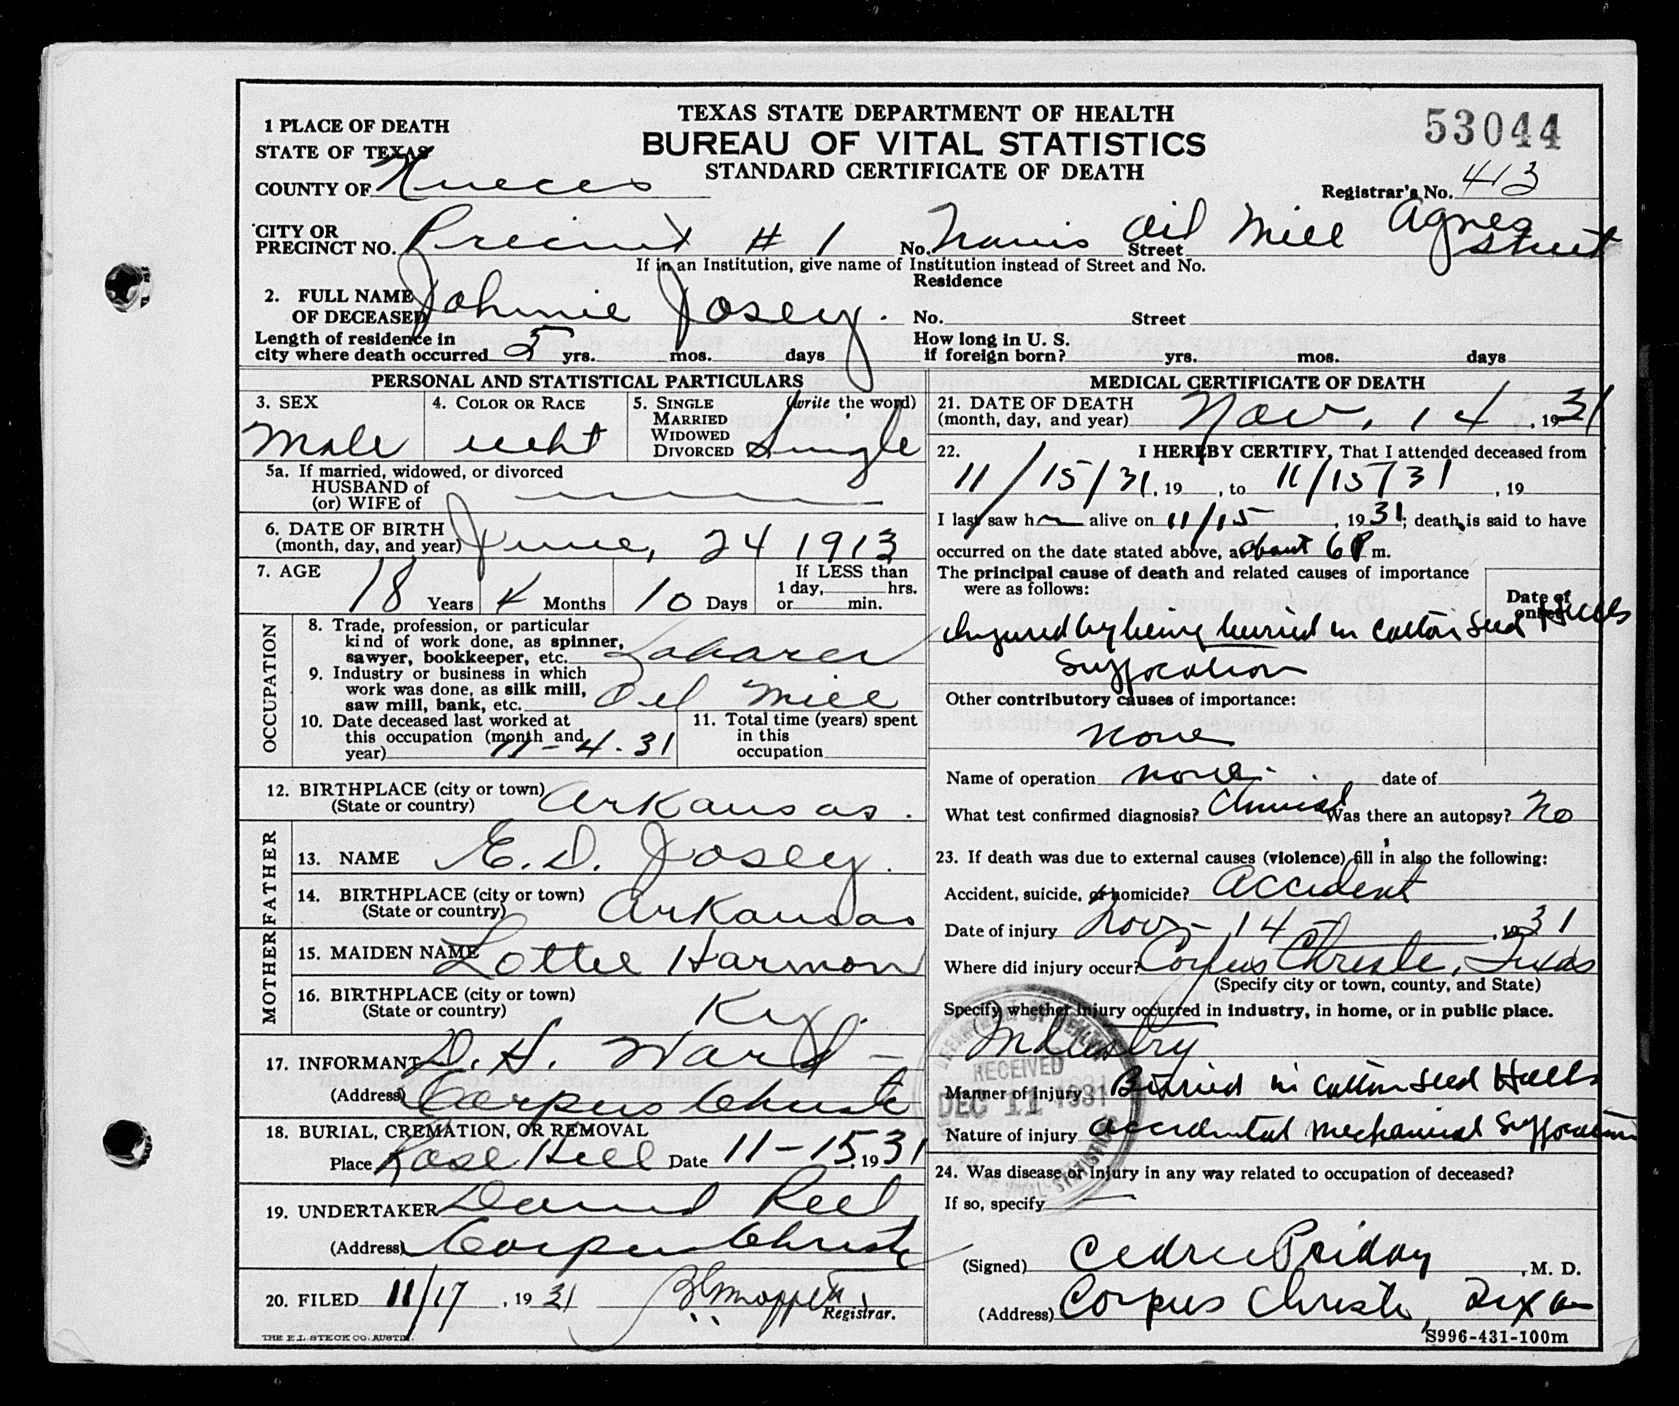 TEXAS STATE DEPARTMENT OF HEALTH
BUREAU OF VITAL STATISTICS
STANDARD CERTIFICATE OF DEATH
53044
1 PLACE OF DEATH
STATE OF TEXAS
COUNTY OF Nueces
Registrar's No. 413
CITY OR PRECINCT NO. Precinct # 1 No. Travis Oil Mill Street Agnes Street
If in an Institution, give name of Institution instead of Street and No.
Residence
2. FULL NAME OF DECEASED Johnie Josey. No. Street
Length of residence in city where death occurred 5 yrs. mos. days How long in U. S. if foreign born? yrs. mos. days
PERSONAL AND STATISTICAL PARTICULARS
3. SEX Male
4. COLOR OR RACE wht
5. SINGLE MARRIED WIDOWED DIVORCED (write the word) Single
5a. If married, widowed, or divorced
HUSBAND of
(or) WIFE of
6. DATE OF BIRTH (month, day, and year) June, 24 1913
7. AGE 18 Years 4 Months 10 Days If LESS than 1 day, hrs. or min.
OCCUPATION
8. Trade, profession, or particular kind of work done, as spinner, sawyer, bookkeeper, etc. Laborer
9. Industry or business in which work was done, as silk mill, saw mill, bank, etc. Oil Mill
10. Date deceased last worked at this occupation (month and year) 11-4-31
11. Total time (years) spent in this occupation
12. BIRTHPLACE (city or town) (State or country) Arkansas.
FATHER
13. NAME E. D. Josey.
14. BIRTHPLACE (city or town) (State or country) Arkansas
MOTHER
15. MAIDEN NAME Lottie Harmon
16. BIRTHPLACE (city or town) (State or country) Ky.
17. INFORMANT D. H. Ward-
(Address) Corpus Christi
18. BURIAL, CREMATION, OR REMOVAL
Place Rose Hill Date 11-15, 1931
19. UNDERTAKER Peel
(Address) Corpus Christi
20. FILED 11/17, 1931
Registrar.
THE E.L. STECK CO. AUSTIN.
MEDICAL CERTIFICATE OF DEATH
21. DATE OF DEATH (month, day, and year) Nov, 14, 1931
22. I HEREBY CERTIFY, That I attended deceased from
11/15/31, 19 , to 11/15/31, 19
I last saw h alive on 11/15, 1931; death is said to have
occurred on the date stated above, at about 6 P m.
The principal cause of death and related causes of importance were as follows:
Date of onset
Injured by being burried in Cotton Seed Hulls
Suffocation
Other contributory causes of importance:
None
Name of operation none. date of
What test confirmed diagnosis? Clinical Was there an autopsy? No
23. If death was due to external causes (violence) fill in also the following:
Accident, suicide, or homicide? Accident
Date of injury Nov- 14 , 1931
Where did injury occur? Corpus Christi, Texas
(Specify city or town, county, and State)
Specify whether injury occurred in industry, in home, or in public place.
Industry
Manner of injury Burried in Cotton Seed Hulls
Nature of injury accidental mechanical Suffocation
RECEIVED
DEC 11 1931
24. Was disease or injury in any way related to occupation of deceased?
If so, specify
(Signed) Cedric Priday, M. D.
(Address) Corpus Christi, Texas
S996-431-100m